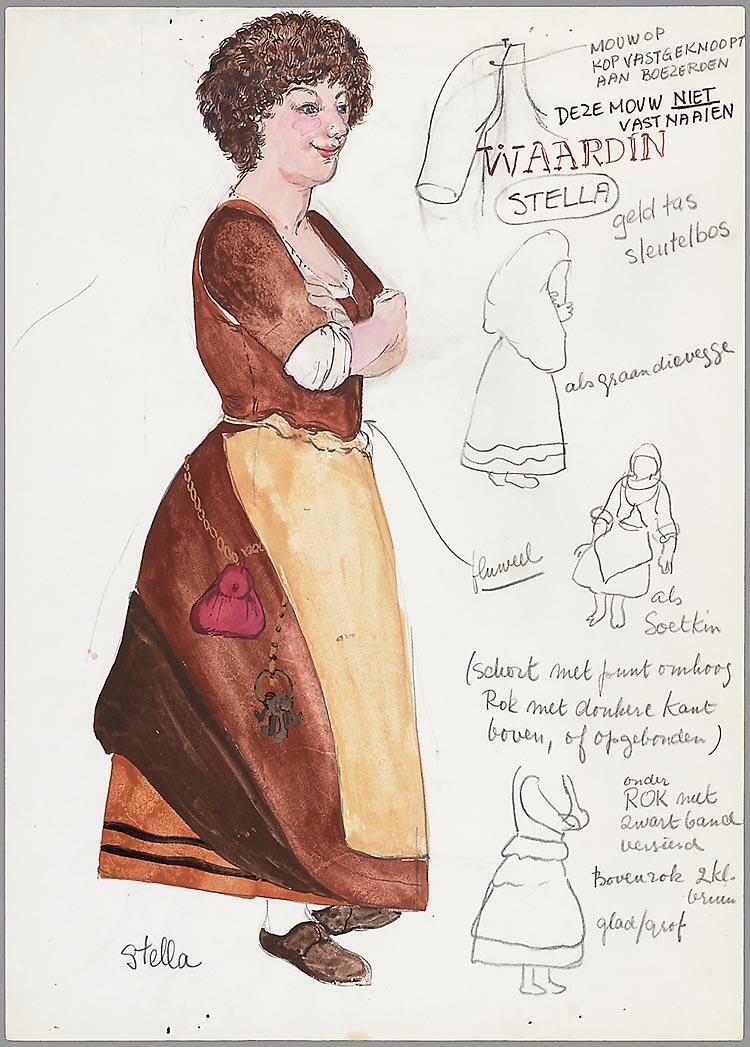 MOUW OP
KOP VASTGEKNOOPT
AAN BOEZEROEN
DEZE MOUW NIET
VAST NAAIEN
WAARDIN
STELLA
geld tas
sleutelbos
als graandievegge
fluweel
als
Soetkin
(schort met punt omhoog
Rok met donkere kant
boven, of opgebonden)
onder
ROK met
zwart band
versierd
Bovenrok 2 kl.
bruin
glad/grof
Stella